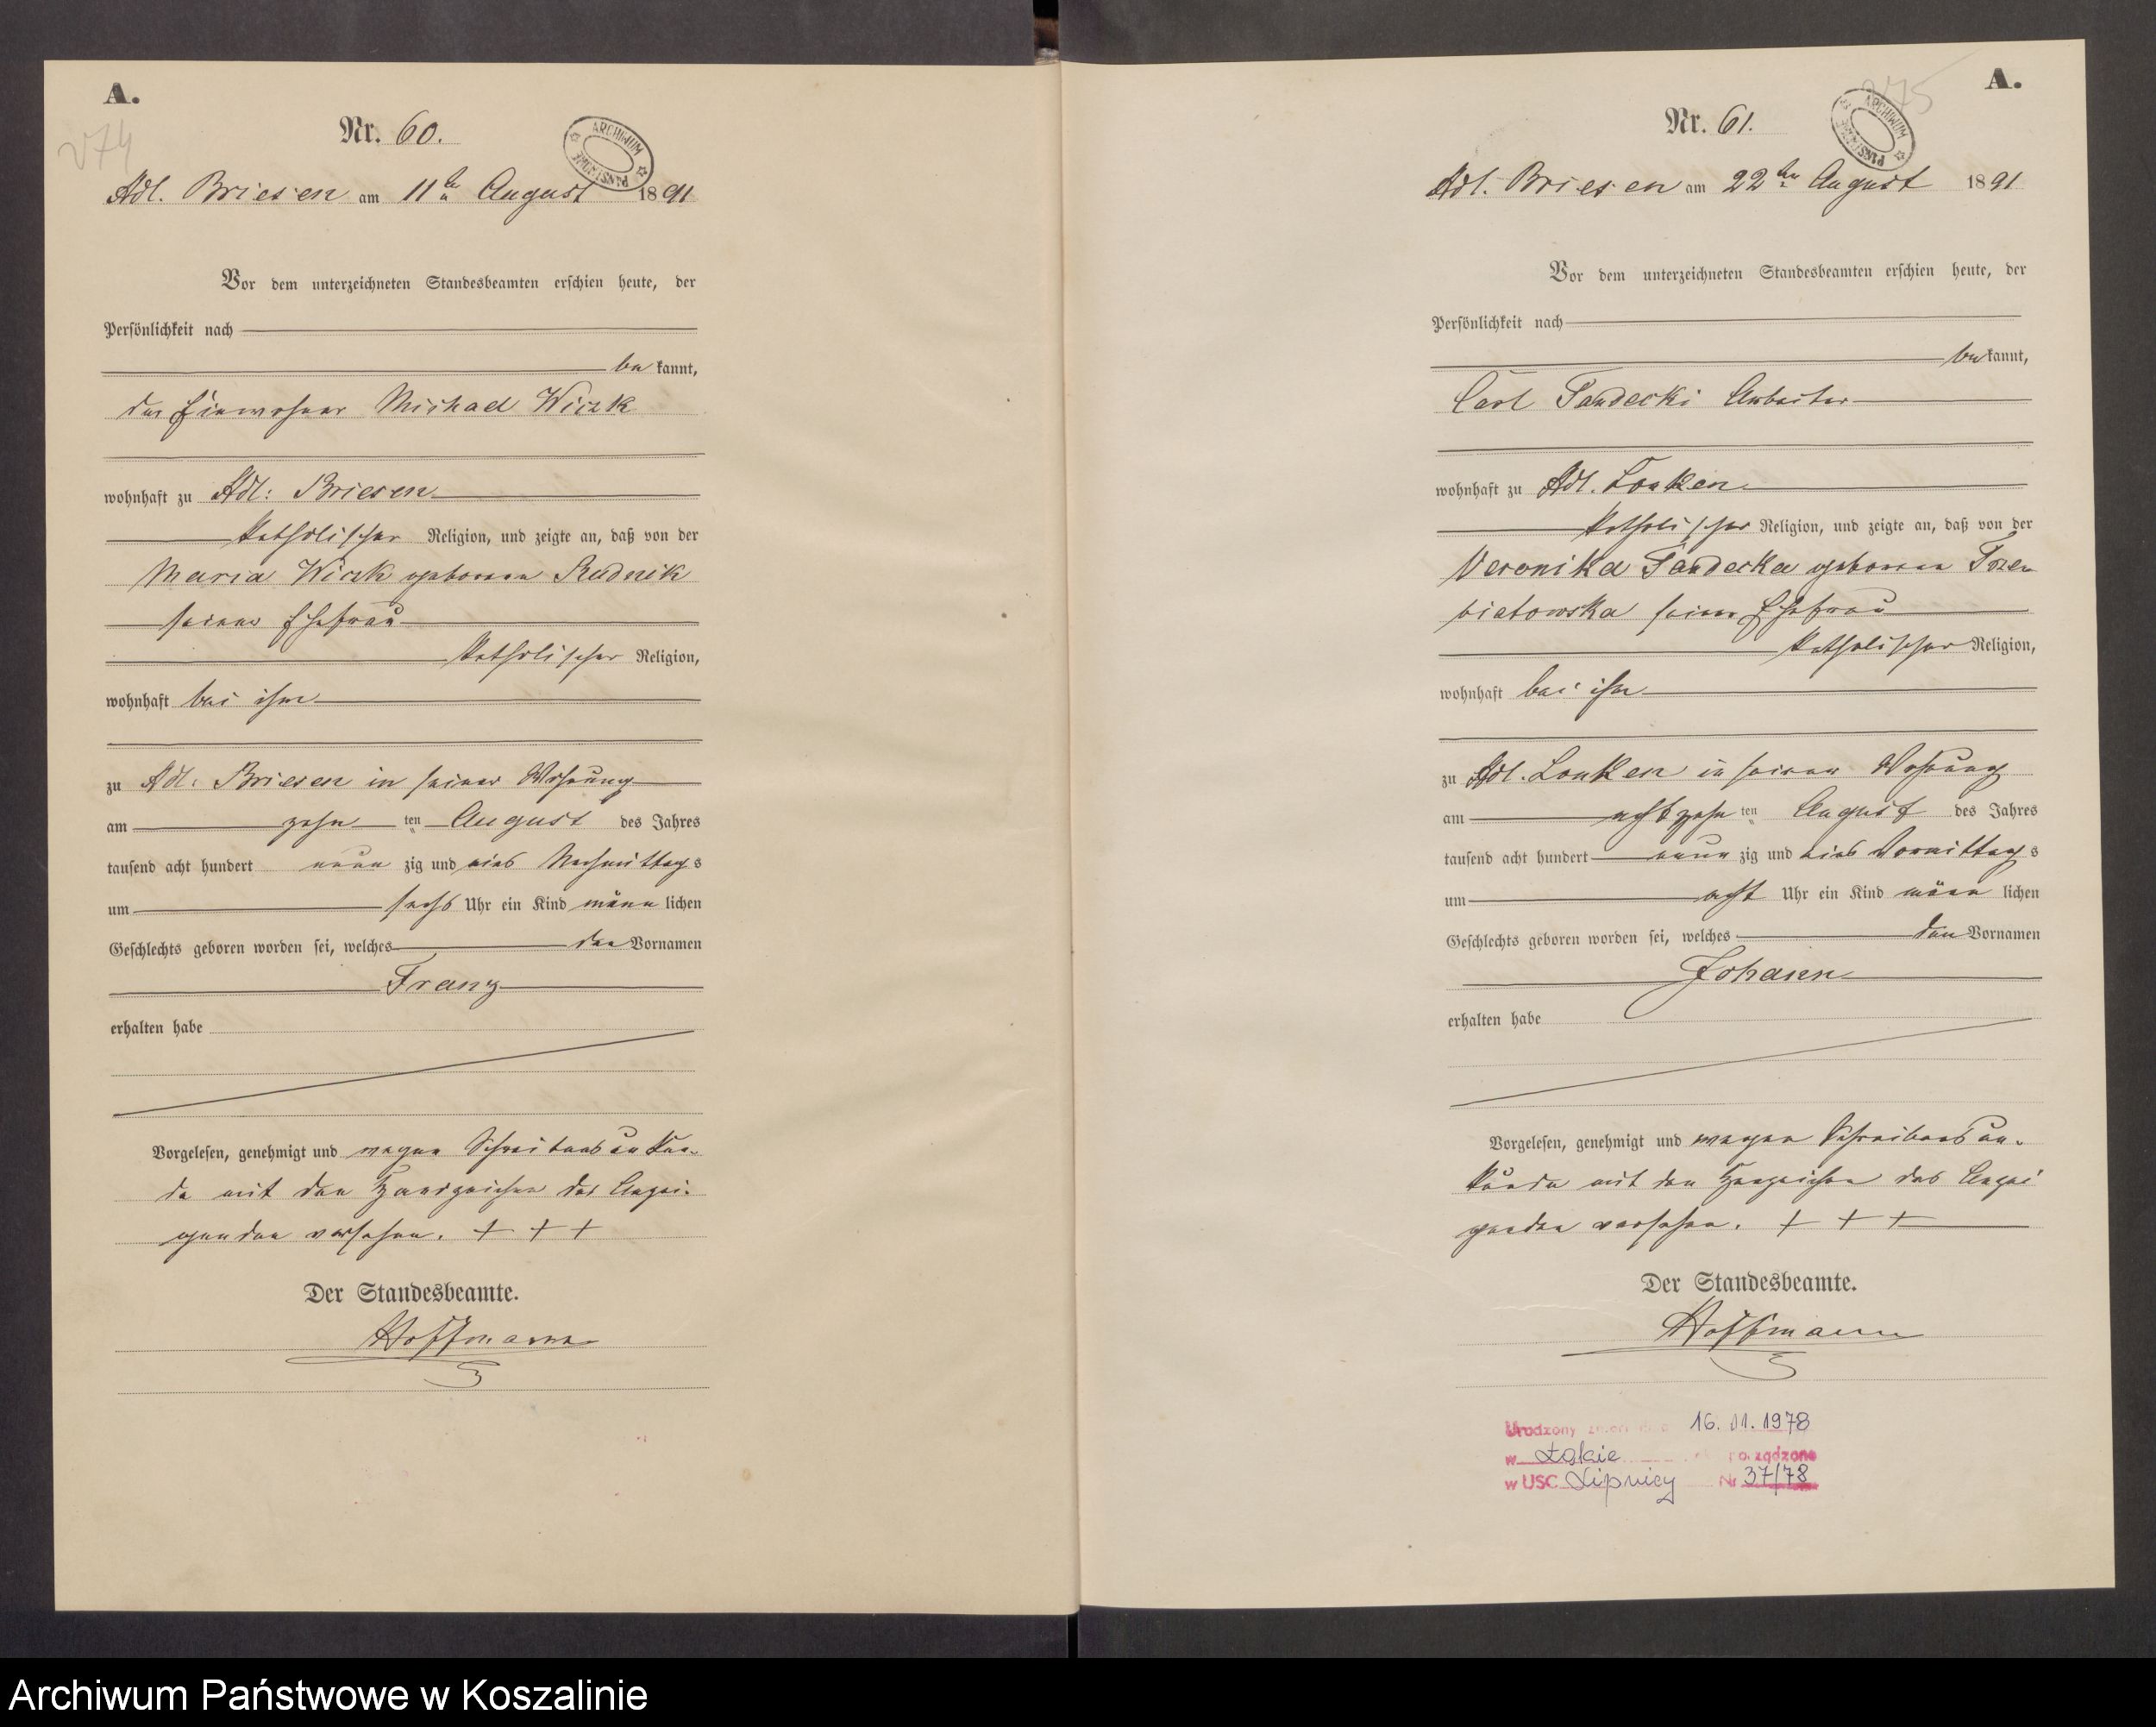 A.
274
Nr. 60.
ARCHIWUM PAŃSTWOWE
Adl. Briesen am 11ten August 1891
Vor dem unterzeichneten Standesbeamten erschien heute, der
Persönlichkeit nach
bekannt,
der Einwohner Michael Wirzk
wohnhaft zu Adl: Briesen
katholischer Religion, und zeigte an, daß von der
Maria Wirzk geborene Rudnik
seiner Ehefrau
katholischer Religion,
wohnhaft bei ihm
zu Adl: Briesen in seiner Wohnung
am zehnten August des Jahres
tausend acht hundert neunzig und eins Nachmittags
um sechs Uhr ein Kind männlichen
Geschlechts geboren worden sei, welches den Vornamen
Franz
erhalten habe
Vorgelesen, genehmigt und wegen Schreibensunkun-
de mit den Handzeichen des Anzei-
genden versehen. + + +
Der Standesbeamte.
Hoffmann
A.
275
Nr. 61.
ARCHIWUM PAŃSTWOWE
Adl. Briesen am 22ten August 1891
Vor dem unterzeichneten Standesbeamten erschien heute, der
Persönlichkeit nach
bekannt,
Carl Tandecki Arbeiter
wohnhaft zu Adl. Lonken
katholischer Religion, und zeigte an, daß von der
Veronika Tandecka geborene Trze-
biatowska seiner Ehefrau
katholischer Religion,
wohnhaft bei ihm
zu Adl. Lonken in seiner Wohnung
am achtzehnten August des Jahres
tausend acht hundert neunzig und eins Vormittags
um acht Uhr ein Kind männlichen
Geschlechts geboren worden sei, welches den Vornamen
Johann
erhalten habe
Vorgelesen, genehmigt und wegen Schreibensun-
kunde mit den Handzeichen des Anzei
genden versehen. + + +
Der Standesbeamte.
Hoffmann
Urodzony 16.01.1978
w Łąkie porządzono
w USC Lipnicy Nr 37/78
Archiwum Państwowe w Koszalinie